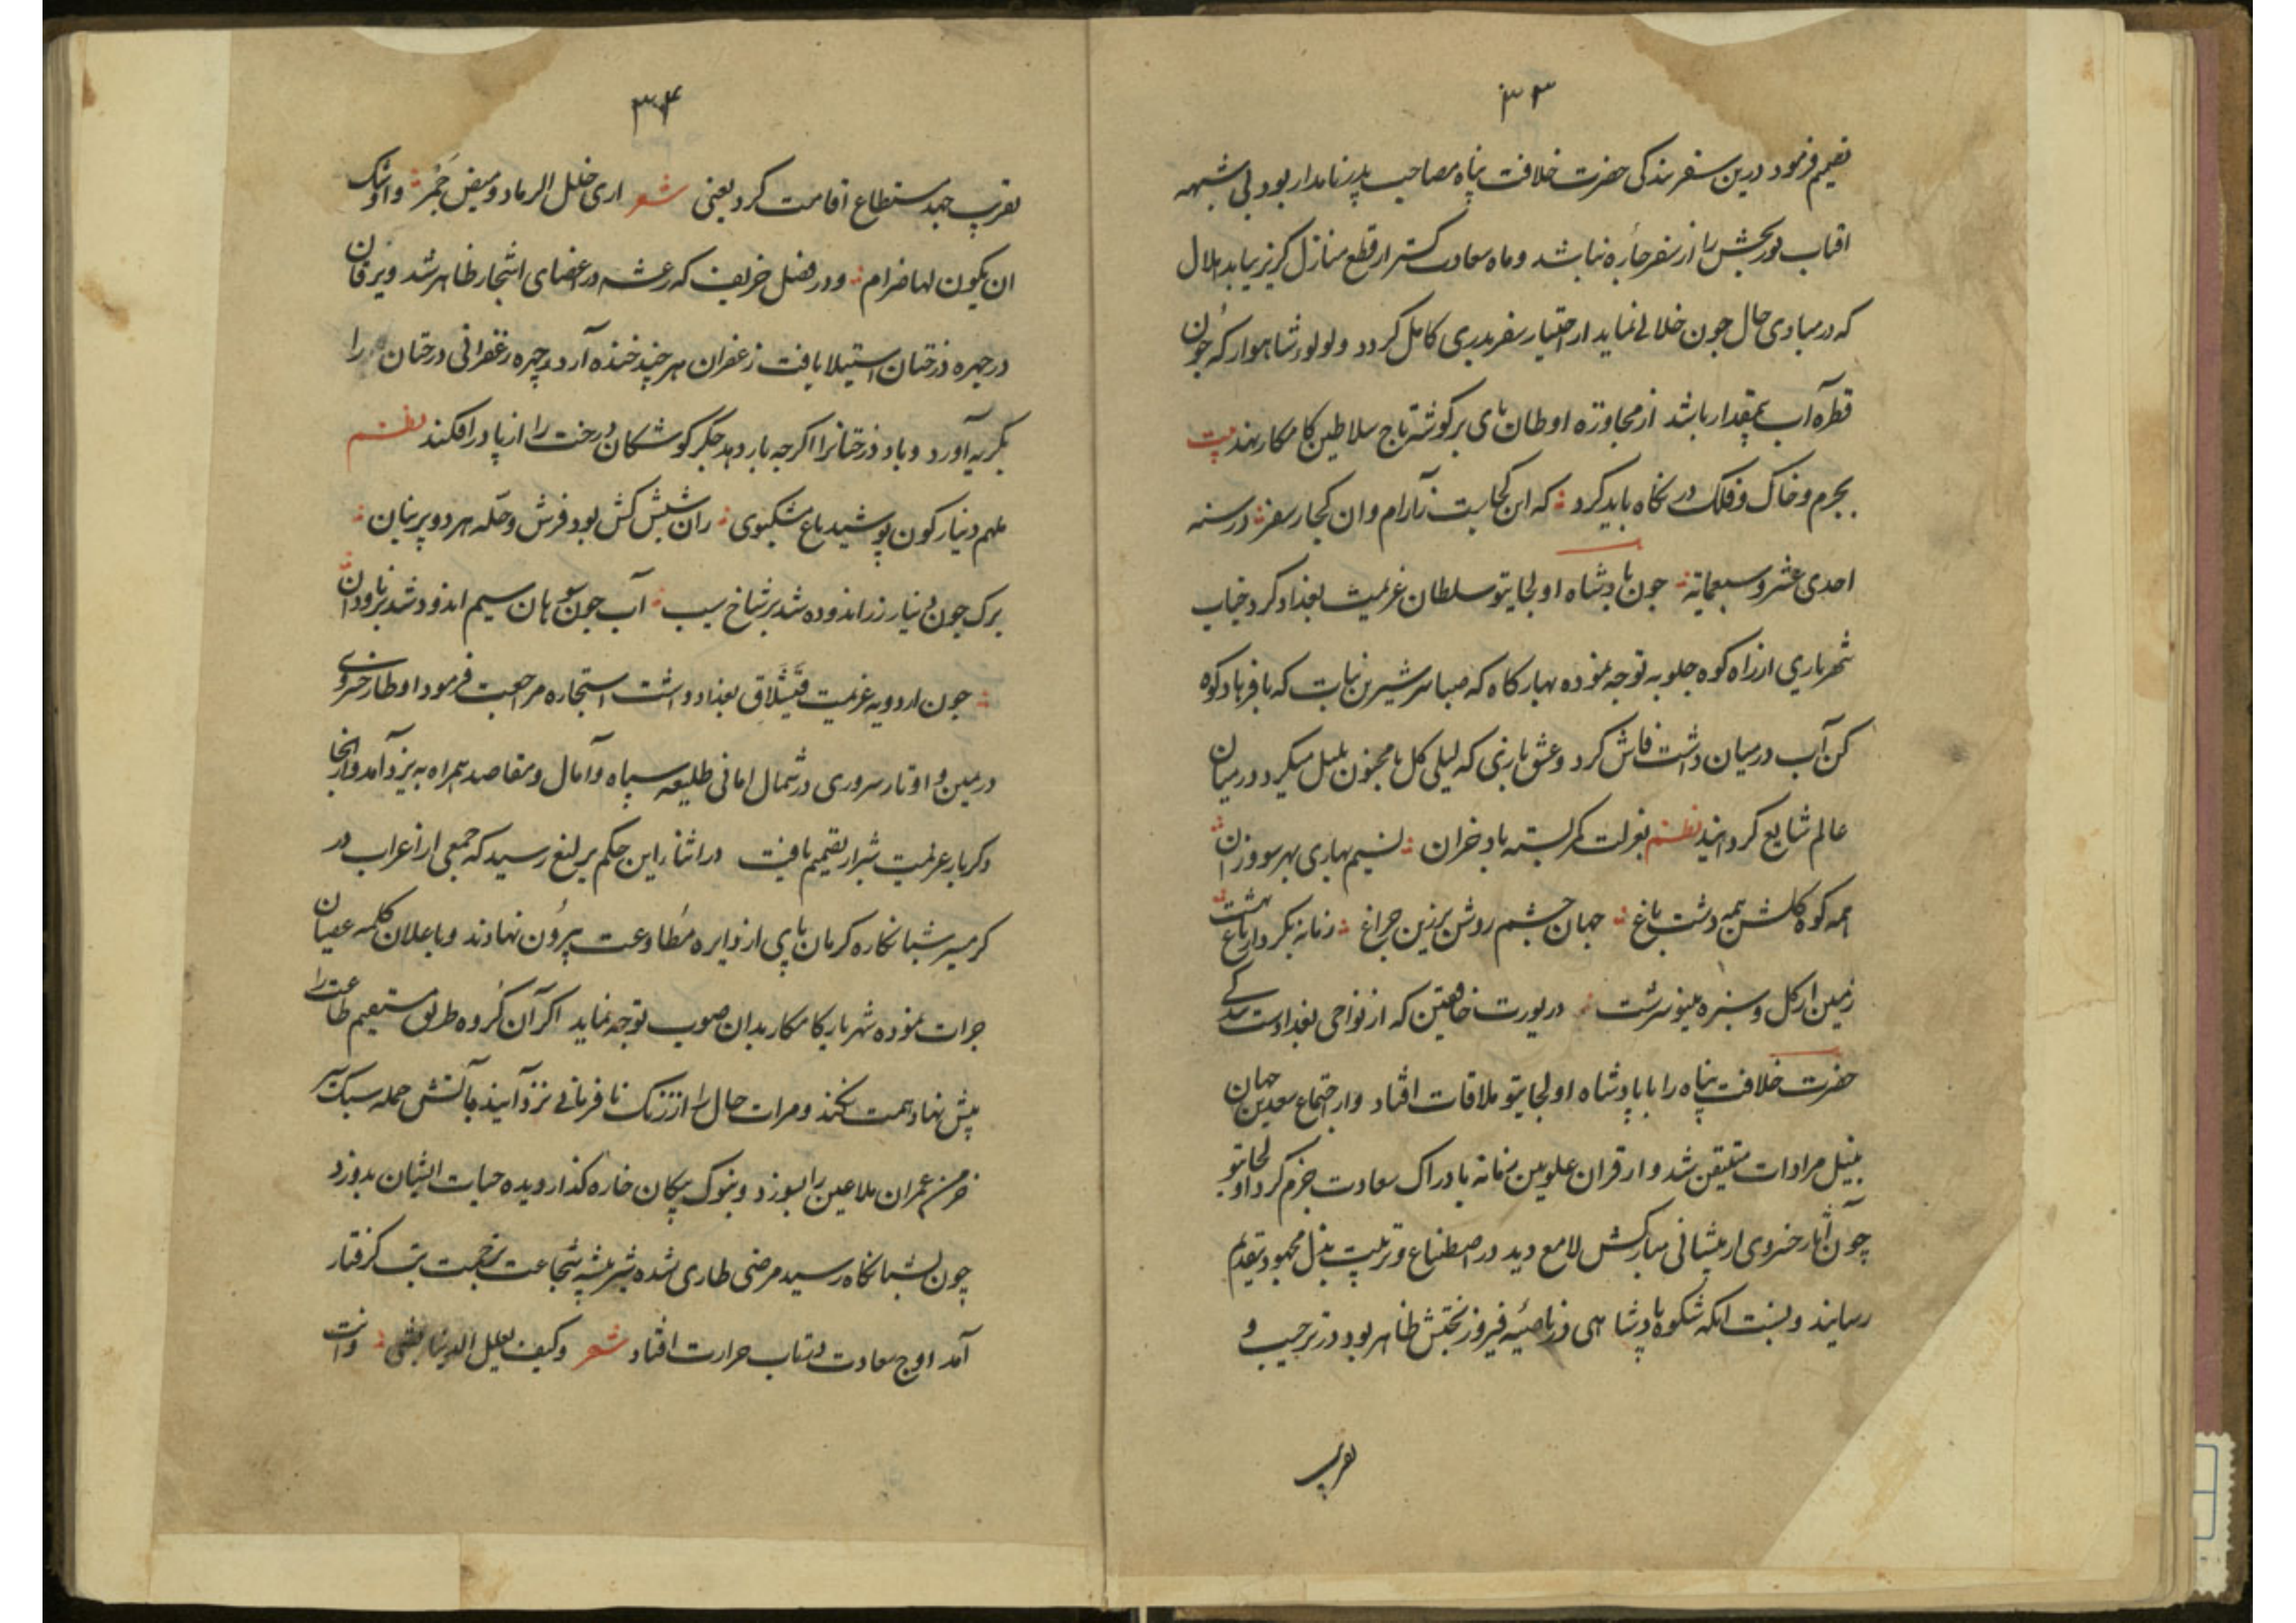 ۳۳
تصمیم فرمود درین سفر بندکی حضرت خلافت پناه مصاحب پدر نامدار بود بی شبهه
افتاب نوربخش را از سفر چاره نباشد و ماه سعادت کستر از قطع منازل کریز نیابد هلال
که در مبادی حال جون خلالی نماید از اختیار سفر بدری کامل کردد و لولو شاهوار که جون
قطره آب بیمقدار باشد از مجاوزه اوطان پای بر کوشه تاج سلاطین کامکار نهد بیت
بجرم و خاک و فلک در نکاه باید کرد که این کجاست ز آرام و ان کجا ز سفر در سنه
احدی عشر و سبعمایة جون پادشاه اولجایتو سلطان عزیمت بغداد کرد جناب
شهریاری از راه کوه جلویه توجه نموده بهار کاه که صبا سر شیرین نبات که با فرهاد کوه
کن آب در میان داشت فاش کرد و عشق بازی که لیلی کل با مجنون بلبل میکرد در میان
عالم شایع کردانید نظم بعزلت کمر بسته باد خزان نسیم بهاری بهر سو وزان
همه کوه کلشن همه دشت باغ جهان چشم روشن بزرین جراغ زمانه بکردار باغ بهشت
زمین از کل و سبزه مینو سرشت در یورت خانقین که از نواحی بغدادست بندکی
حضرت خلافت پناه را با پادشاه اولجایتو ملاقات افتاد و از اجتماع سعدین جهان
بنیل مرادات متیقن شد و از قران علویین زمانه بادراک سعادت جزم کرد اولجایتو
چون آثار خسروی از پیشانی مبارکش لامع دید در اصطناع و تربیت بذل مجهود بتقدیم
رسانید و بنسبت انکه شکوه پادشاهی در ناصیه فیروز بختش ظاهر بود در ترحیب و
تقریب
۳۴
تقریب جهد مستطاع اقامت کرد یعنی شعر اری خلل الرماد ومیض جمر واوشک
ان یکون لها ضرام و در فصل خریف که رعشه در اعضای اشجار ظاهر شد و یرقان
در جهره درختان استیلا یافت زعفران هر چند خنده آرد چهره زعفرانی درختان را
بکریه آورد و باد درختانرا اکرجه بار دهد جکر کوشکان درخت را از پا در افکند نظم
ملهم دینار کون پوشید باغ مشکبوی ران شبش کش بود فرش و حله هر دو پرنیان
برک جون دینار زر اندوده شد بر شاخ سیب آب جون سوهان سیم اندود شد بر ناودان
جون اردو به عزیمت قیشلاق بغداد داشت استجاره مراجعت فرمود اوطار خسروی
در یمین و اوتار سروری در شمال امانی طلیعه سپاه و آمال و مقاصد همراه به یزد آمد و از انجا
دکر بار عزیمت شیراز تصمیم یافت در اثنا این حکم یرلیغ رسید که جمعی از اعراب در
کرمسیر شبانکاره کرمان پای از دایره مطاوعت بیرون نهادند و باعلان کلمه عصیان
جرات نموده شهریار کامکار بدان صوب توجه نماید اکر آن کروه طریق مستقیم طاعت را
پیش نهاد همت نکند و مرات حال را از زنک نافرمانی نزدآیند بآتش حمله سبک سر
خرمن عمران ملاعین را بسوزد و بنوک پیکان خاره کذار دیده حیات ایشان بدوزد
چون بشبانکاه رسید مرضی طاری شده شیر بیشه شجاعت بزحمت تب کرفتار
آمد اوج سعادت در تاب حرارت افتاد شعر وکیف تعلک الدنیا بشی وانت